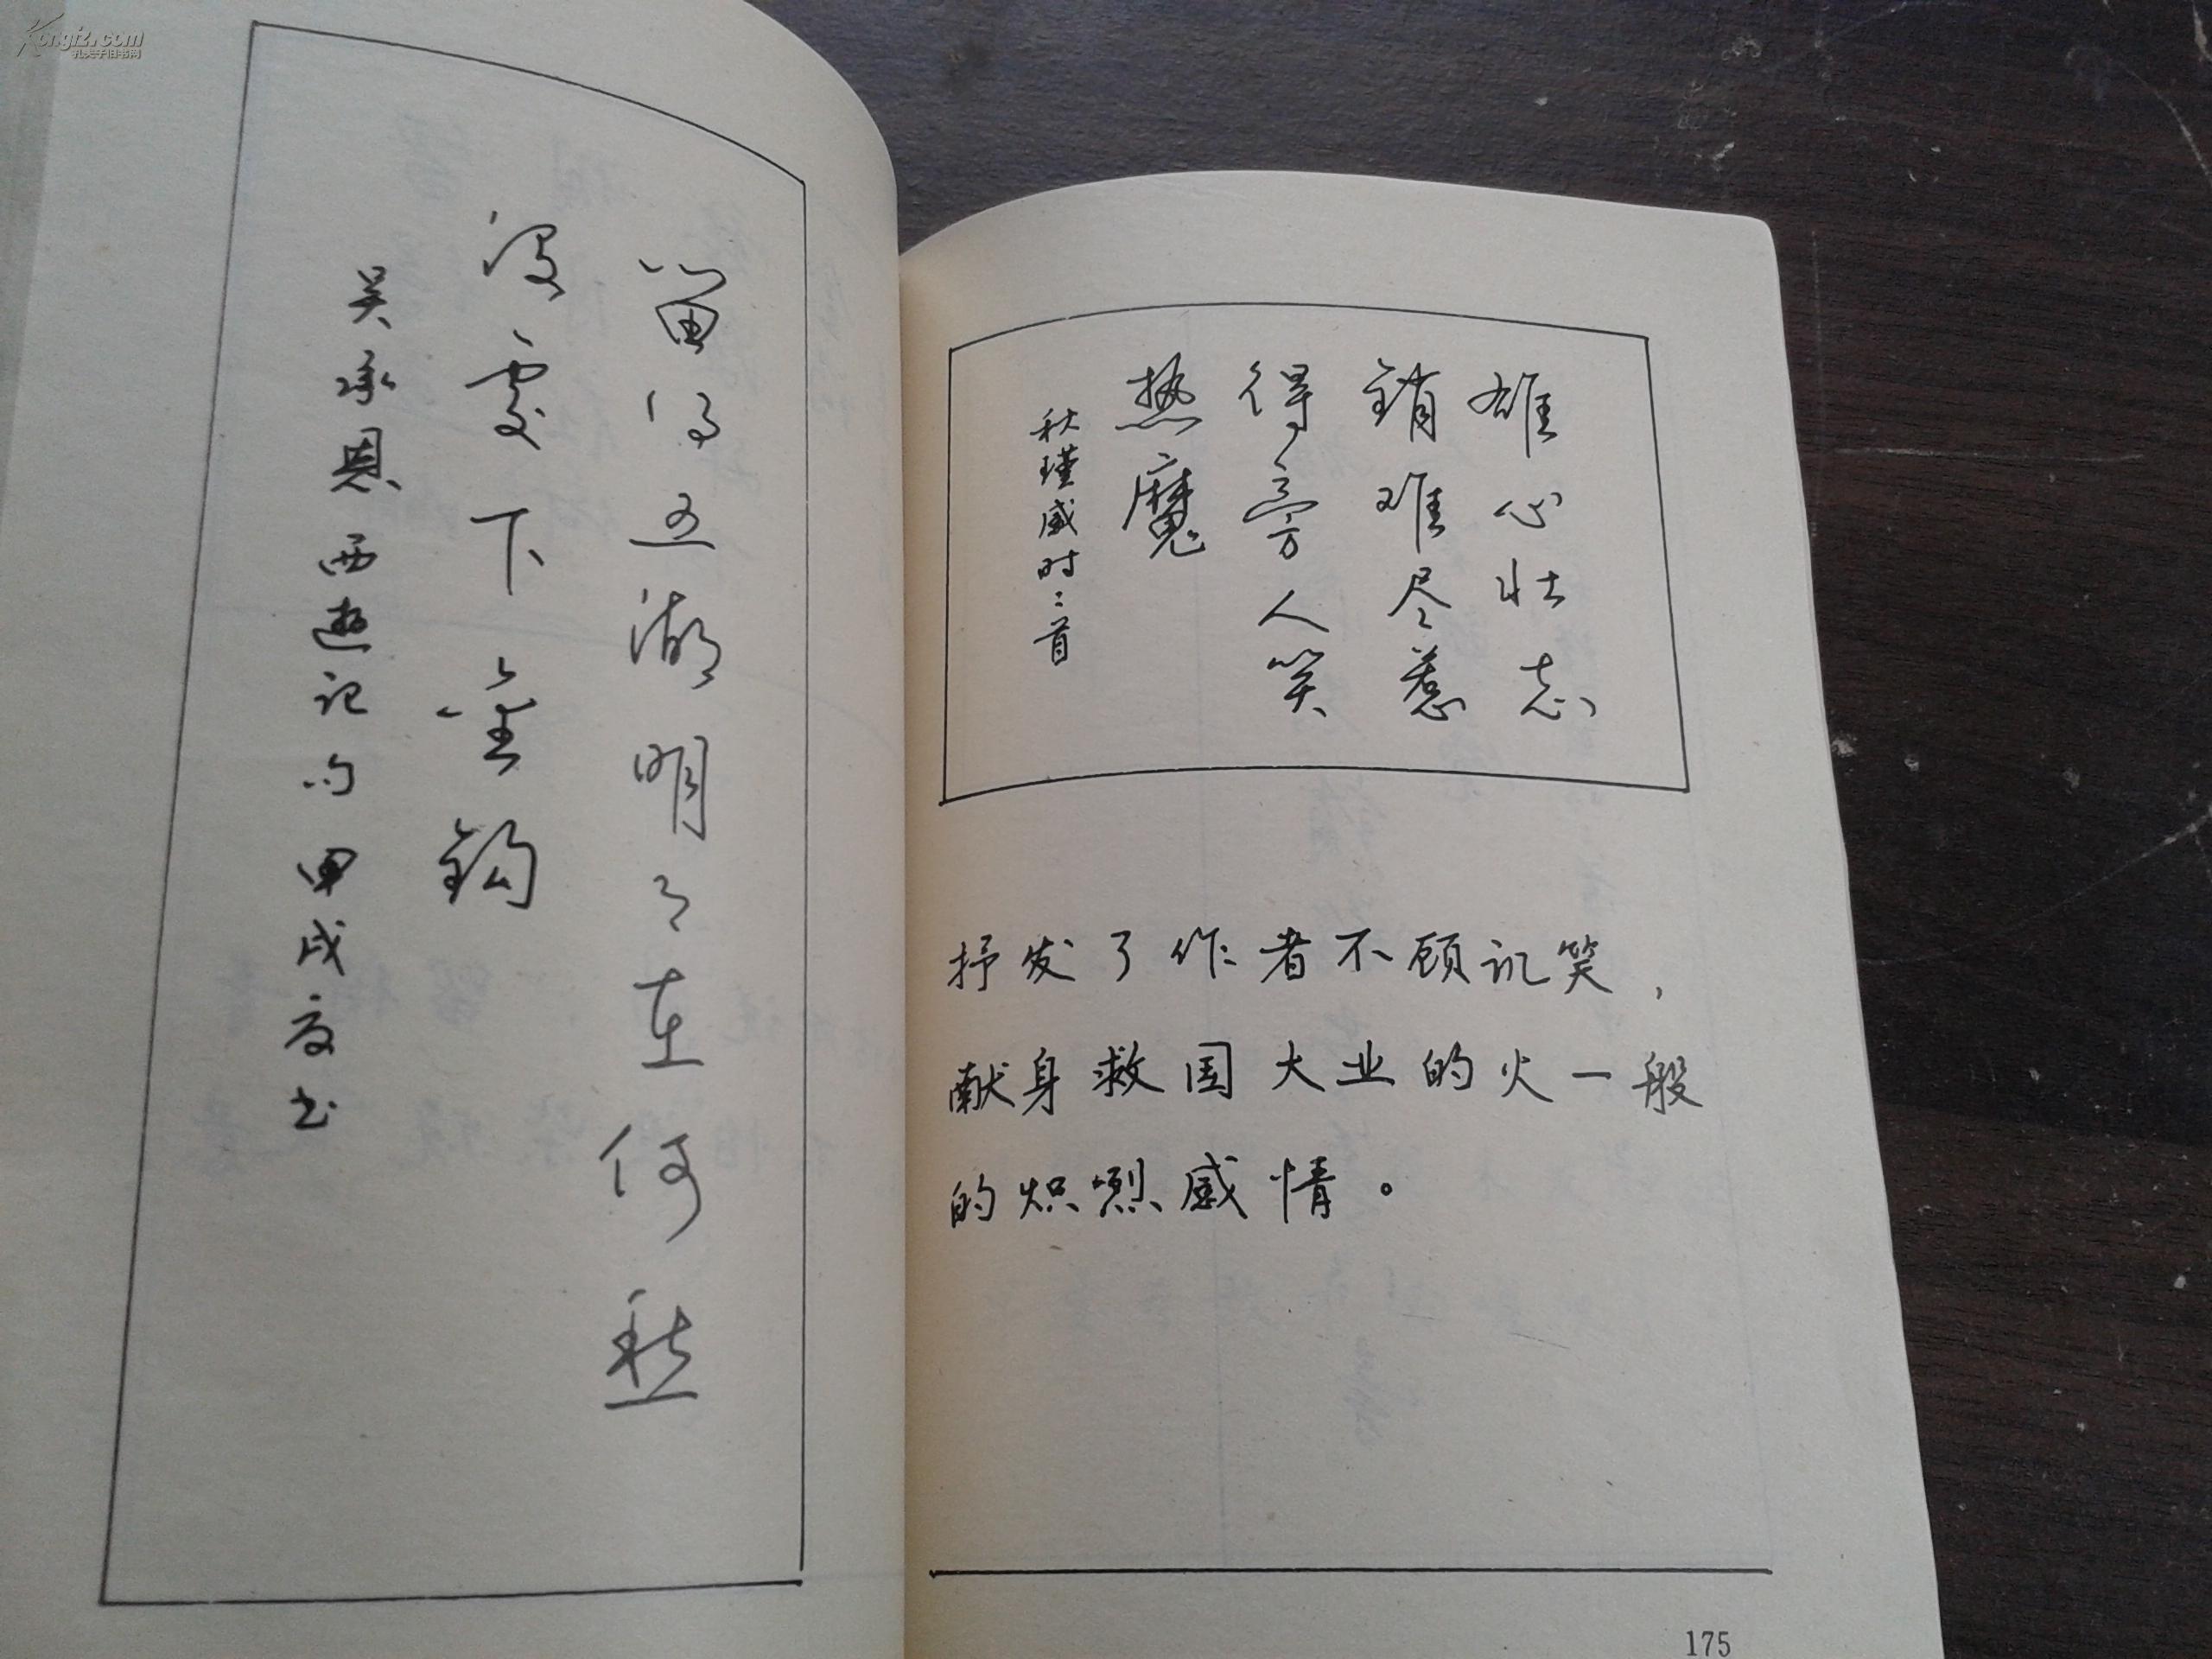 Kongfz.com
孔夫子旧书网
留得五湖明月在何愁
没處下金鈎
吴承恩西遊记句 甲戌夏书
雄心壮志
銷难尽惹
得旁人笑
热魔
秋瑾感时二首
抒发了作者不顾讥笑，
献身救国大业的火一般
的炽烈感情。
175